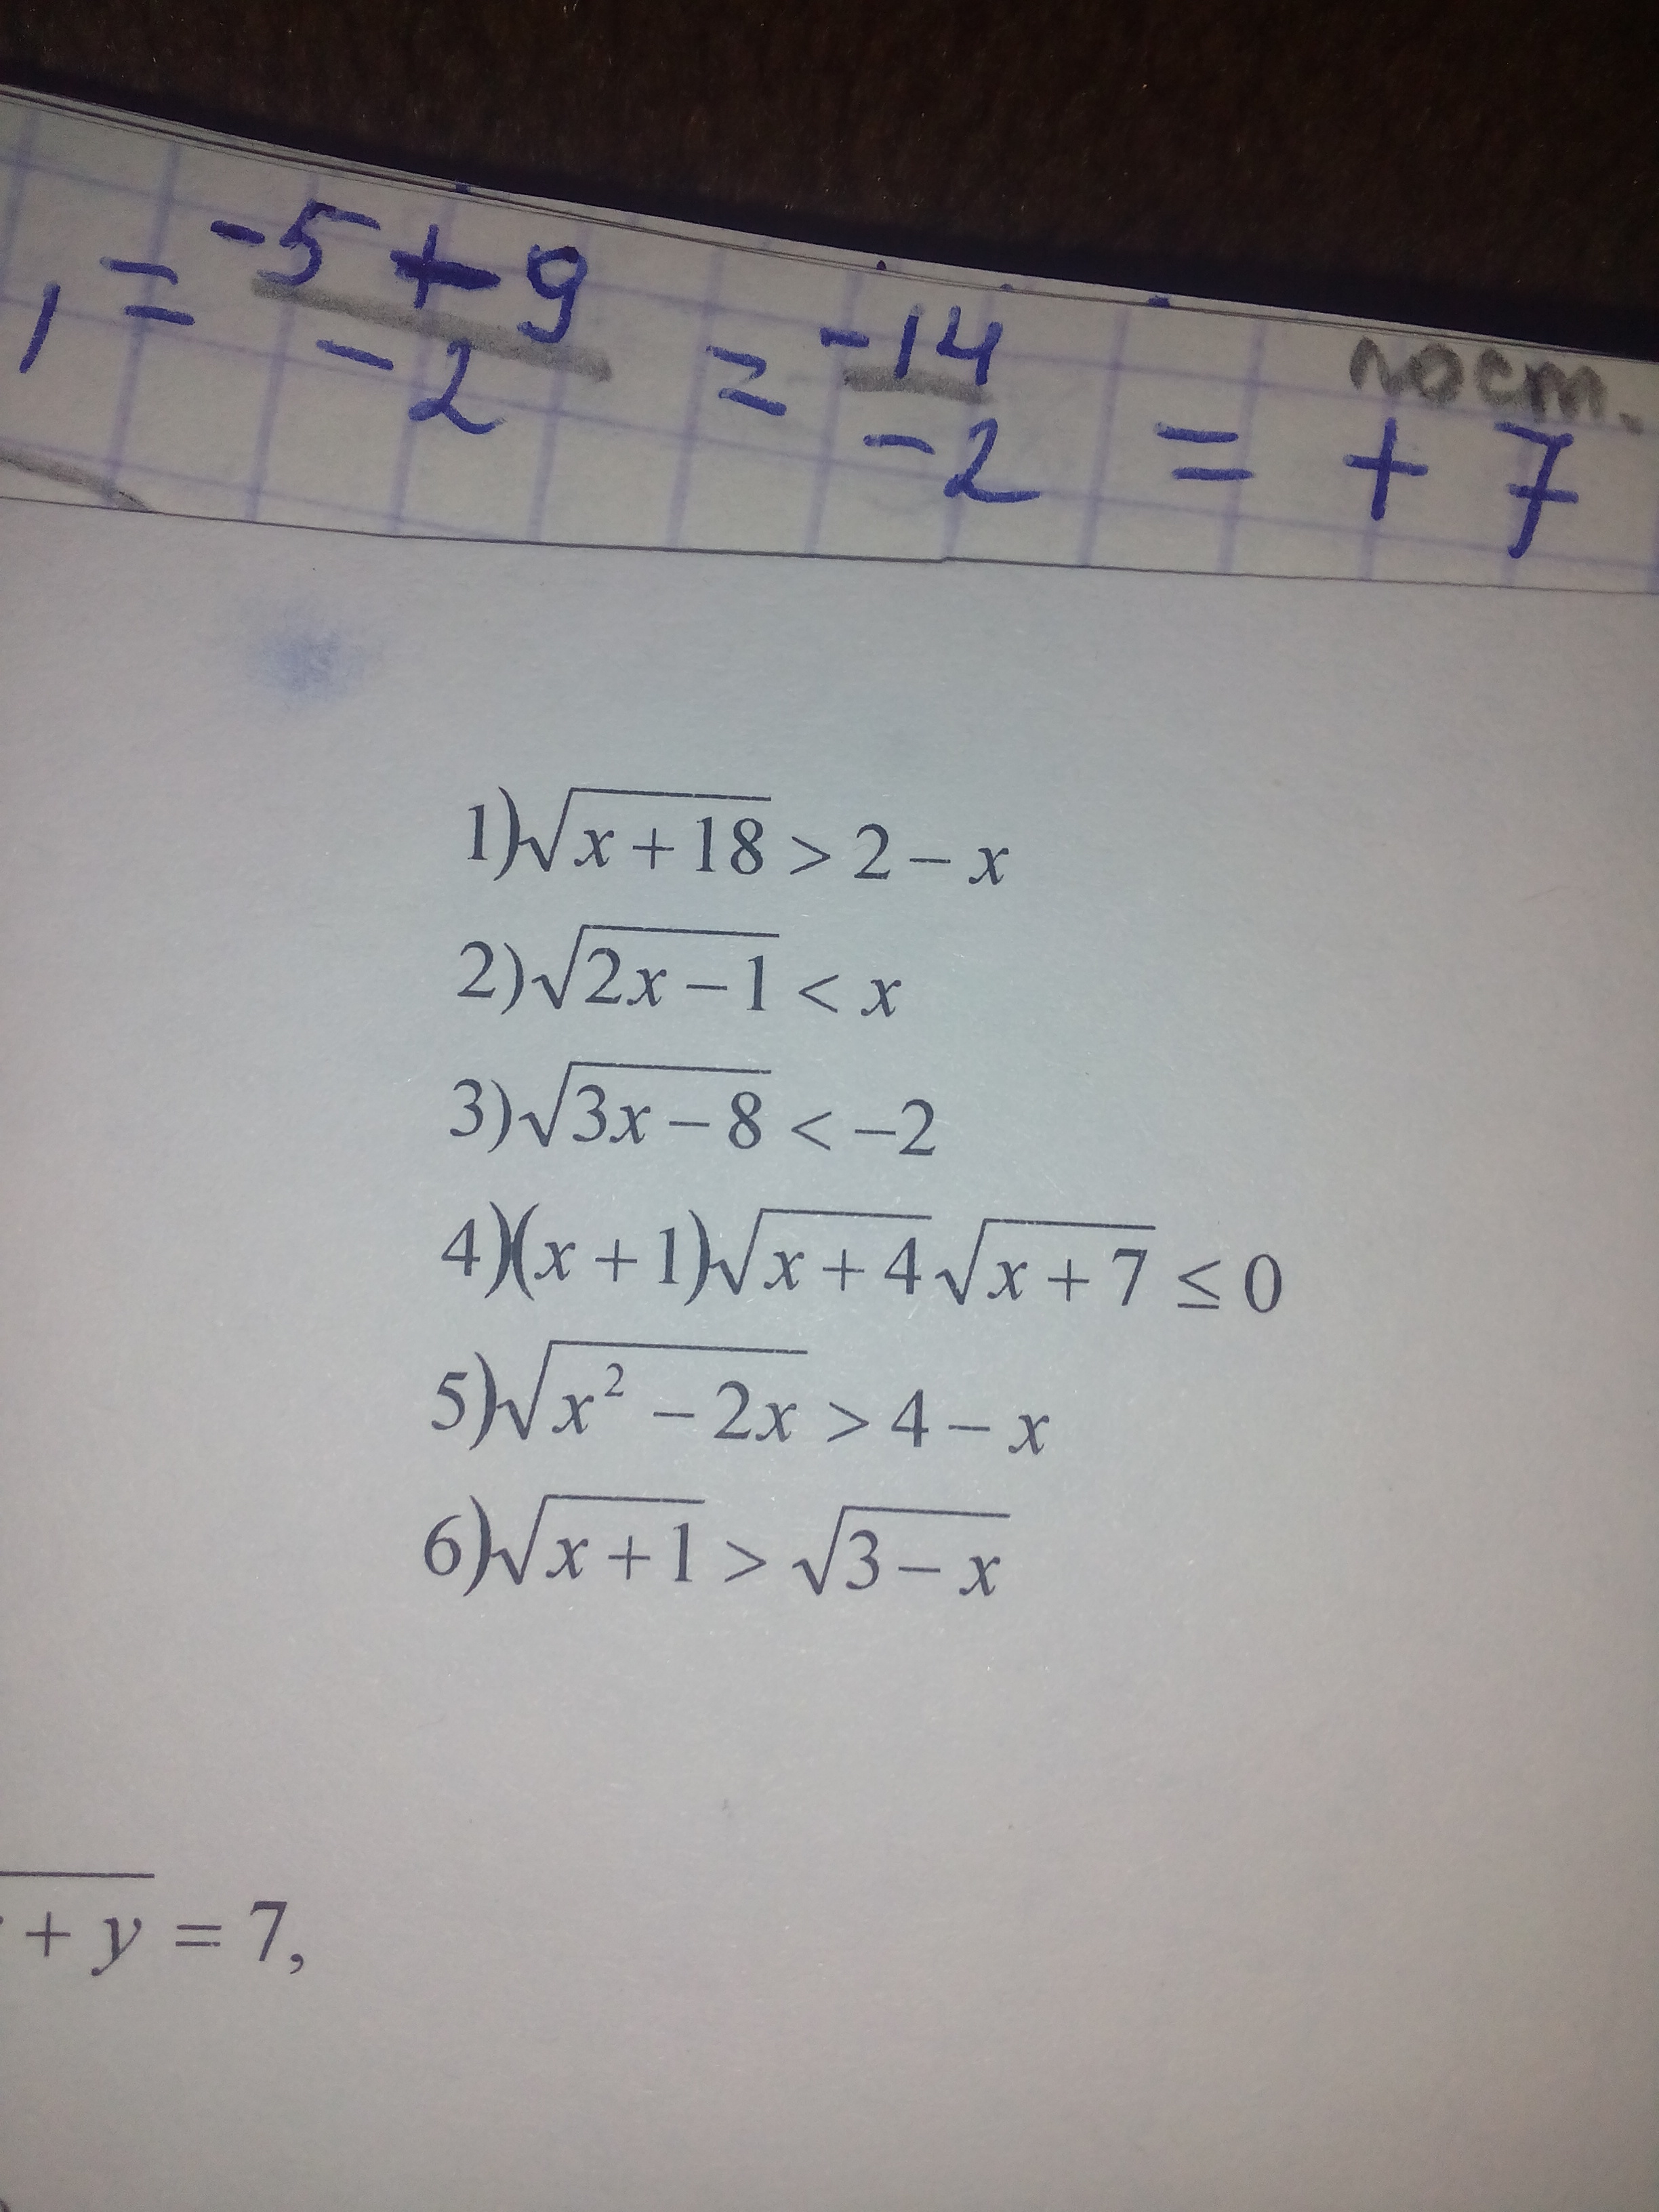 , = -5+9/-2 = -14/-2 = +7
пост.
1)√(x+18) > 2 − x
2)√(2x−1) < x
3)√(3x−8) < −2
4)(x+1)√(x+4)√(x+7) ≤ 0
5)√(x² − 2x) > 4 − x
6)√(x+1) > √(3−x)
+ y = 7,